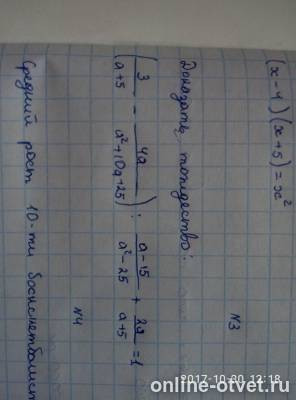 (x-4)(x+5)=x²
N3
Доказать тождество:
(3/(a+5) - 4a/(a²+10a+25)) : (a-15)/(a²-25) + 2a/(a+5) = 1
N4
Средний рост 10-ти баскетболист
2017-10-30 12:18
online-otvet.ru